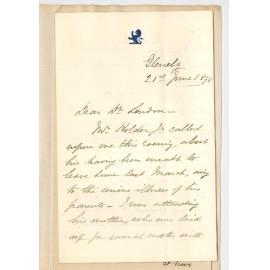 Glenelg
21st June 1898
Dear Dr. London -
Mr. Holder Jr. called
upon me this evening, about
his having been unable to
leave home last March, owing
to the serious illness of his
parents - I was attending
his mother, who was laid
up for several weeks with